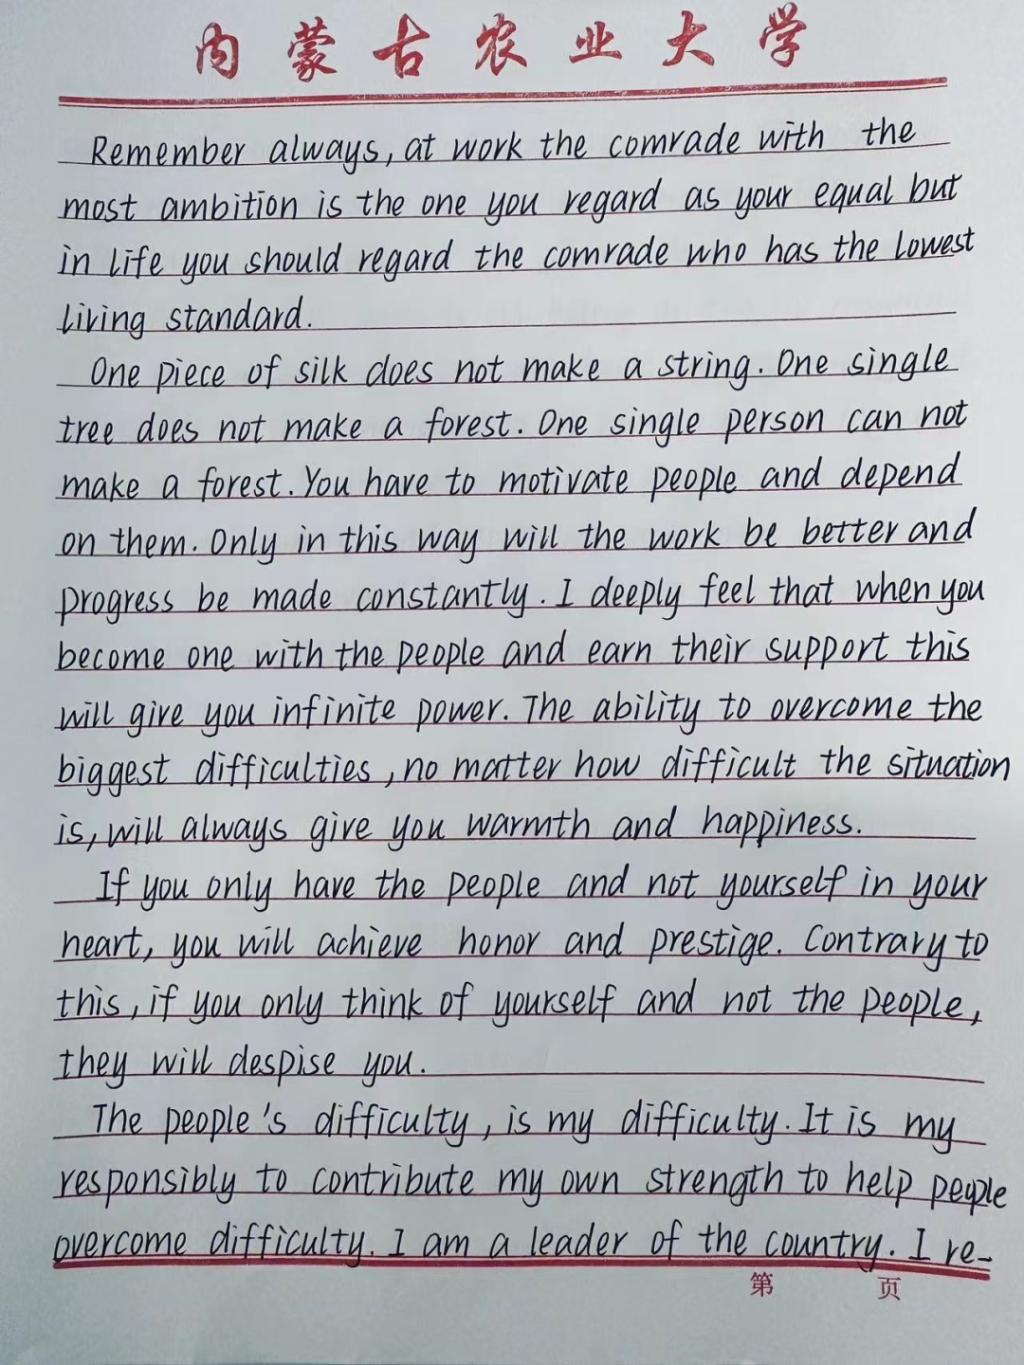 内蒙古农业大学
Remember always, at work the comrade with the
most ambition is the one you regard as your equal but
in life you should regard the comrade who has the lowest
living standard.
One piece of silk does not make a string. One single
tree does not make a forest. One single person can not
make a forest. You have to motivate people and depend
on them. Only in this way will the work be better and
progress be made constantly. I deeply feel that when you
become one with the people and earn their support this
will give you infinite power. The ability to overcome the
biggest difficulties, no matter how difficult the situation
is, will always give you warmth and happiness.
If you only have the people and not yourself in your
heart, you will achieve honor and prestige. Contrary to
this, if you only think of yourself and not the people,
they will despise you.
The people's difficulty, is my difficulty. It is my
responsibly to contribute my own strength to help people
overcome difficulty. I am a leader of the country. I re-
第 页